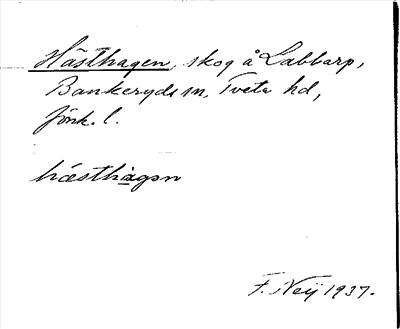 Hästhagen, skog å Labbarp,
Bankeryds sn, Tveta hd,
Jönk. l.
hæsthàgən
F. Neij 1937.